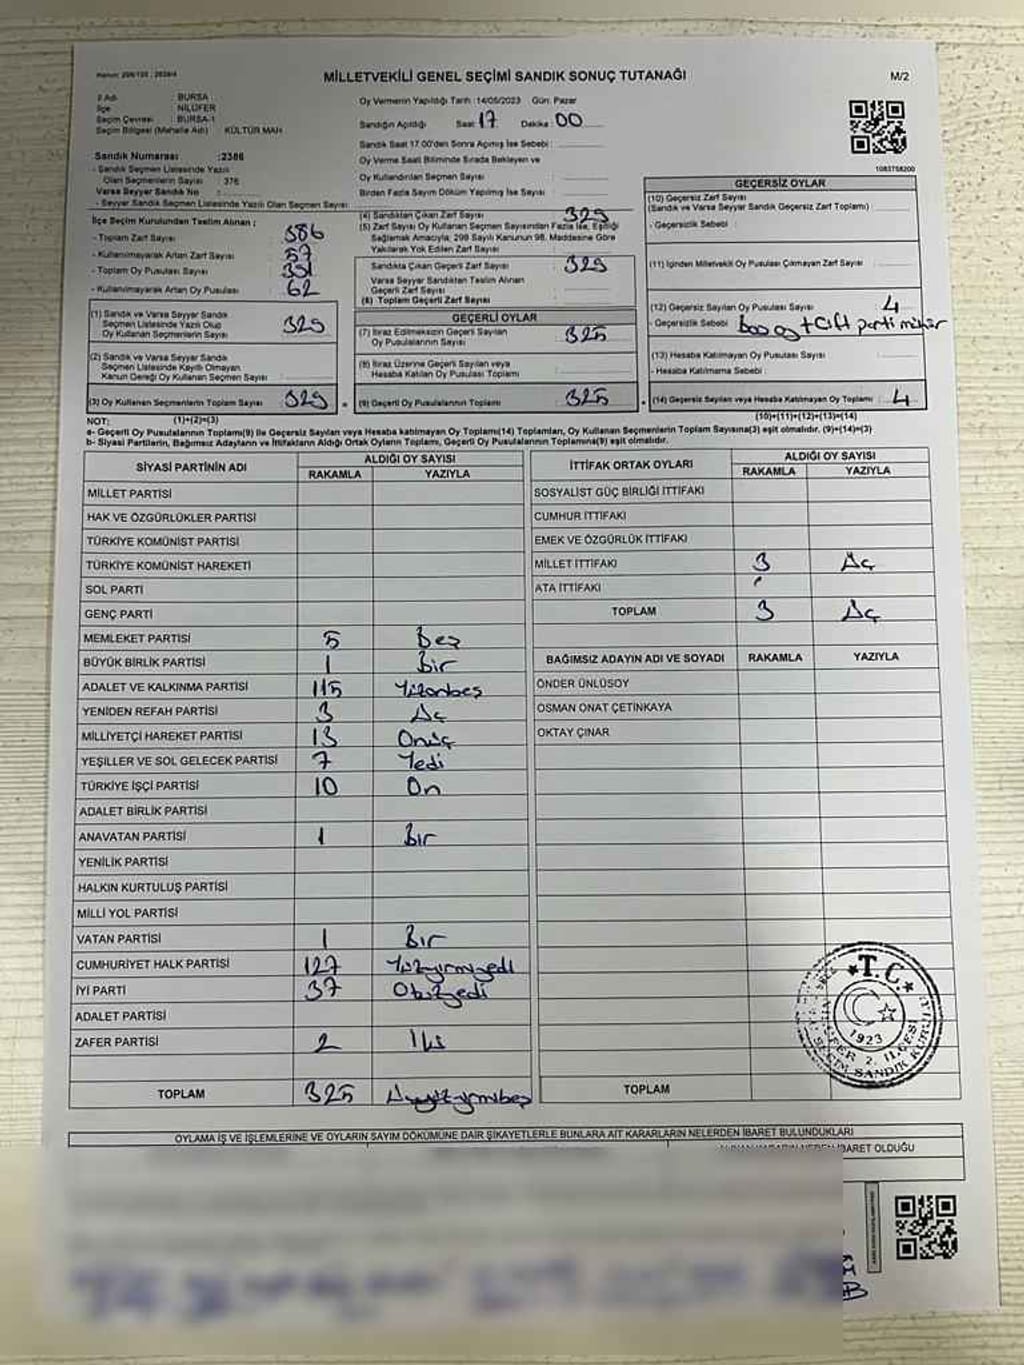 MİLLETVEKİLİ GENEL SEÇİMİ SANDIK SONUÇ TUTANAĞI
M/2
İl Adı : BURSA
İlçe : NİLÜFER
Seçim Çevresi : BURSA-1
Seçim Bölgesi (Mahalle Adı) : KÜLTÜR MAH
Sandık Numarası : 2386
- Sandık Seçmen Listesinde Yazılı
Olan Seçmenlerin Sayısı : 376
Varsa Seyyar Sandık No :
- Seyyar Sandık Seçmen Listesinde Yazılı Olan Seçmen Sayısı
Oy Vermenin Yapıldığı Tarih :14/05/2023 Gün: Pazar
Sandığın Açıldığı Saat: 17 Dakika: 00
Sandık Saat 17.00'den Sonra Açılmış İse Sebebi :
Oy Verme Saati Bitiminde Sırada Bekleyen ve
Oy Kullandırılan Seçmen Sayısı
Birden Fazla Sayım Döküm Yapılmış İse Sayısı
1083758200
İlçe Seçim Kurulundan Teslim Alınan ;
- Toplam Zarf Sayısı 386
- Kullanılmayarak Artan Zarf Sayısı 57
- Toplam Oy Pusulası Sayısı 391
- Kullanılmayarak Artan Oy Pusulası 62
(1) Sandık ve Varsa Seyyar Sandık
Seçmen Listesinde Yazılı Olup
Oy Kullanan Seçmenlerin Sayısı 329
(2) Sandık ve Varsa Seyyar Sandık
Seçmen Listesinde Kayıtlı Olmayan
Kanun Gereği Oy Kullanan Seçmen Sayısı
(3) Oy Kullanan Seçmenlerin Toplam Sayısı 329
(4) Sandıktan Çıkan Zarf Sayısı 329
(5) Zarf Sayısı Oy Kullanan Seçmen Sayısından Fazla İse, Eşitliği
Sağlamak Amacıyla, 298 Sayılı Kanunun 98. Maddesine Göre
Yakılarak Yok Edilen Zarf Sayısı
Sandıkta Çıkan Geçerli Zarf Sayısı 329
Varsa Seyyar Sandıktan Teslim Alınan
Geçerli Zarf Sayısı
(6) Toplam Geçerli Zarf Sayısı
GEÇERLİ OYLAR
(7) İtiraz Edilmeksizin Geçerli Sayılan
Oy Pusulalarının Sayısı 325
(8) İtiraz Üzerine Geçerli Sayılan veya
Hesaba Katılan Oy Pusulası Toplamı
(9) Geçerli Oy Pusulalarının Toplamı 325
GEÇERSİZ OYLAR
(10) Geçersiz Zarf Sayısı
(Sandık ve Varsa Seyyar Sandık Geçersiz Zarf Toplamı)
- Geçersizlik Sebebi :
(11) İçinden Milletvekili Oy Pusulası Çıkmayan Zarf Sayısı
(12) Geçersiz Sayılan Oy Pusulası Sayısı 4
- Geçersizlik Sebebi Boş oy + Çift parti mühür
(13) Hesaba Katılmayan Oy Pusulası Sayısı
- Hesaba Katılmama Sebebi :
(14) Geçersiz Sayılan veya Hesaba Katılmayan Oy Toplamı 4
NOT: (1)+(2)=(3)
(10)+(11)+(12)+(13)=(14)
a- Geçerli Oy Pusulalarının Toplamı(9) ile Geçersiz Sayılan veya Hesaba katılmayan Oy Toplamı(14) Toplamları, Oy Kullanan Seçmenlerin Toplam Sayısına(3) eşit olmalıdır. (9)+(14)=(3)
b- Siyasi Partilerin, Bağımsız Adayların ve İttifakların Aldığı Ortak Oyların Toplamı, Geçerli Oy Pusulalarının Toplamına(9) eşit olmalıdır.
SİYASİ PARTİNİN ADI ALDIĞI OY SAYISI
RAKAMLA YAZIYLA
MİLLET PARTİSİ
HAK VE ÖZGÜRLÜKLER PARTİSİ
TÜRKİYE KOMÜNİST PARTİSİ
TÜRKİYE KOMÜNİST HAREKETİ
SOL PARTİ
GENÇ PARTİ
MEMLEKET PARTİSİ 5 Beş
BÜYÜK BİRLİK PARTİSİ 1 Bir
ADALET VE KALKINMA PARTİSİ 115 Yüzonbeş
YENİDEN REFAH PARTİSİ 3 Üç
MİLLİYETÇİ HAREKET PARTİSİ 13 Onüç
YEŞİLLER VE SOL GELECEK PARTİSİ 7 Yedi
TÜRKİYE İŞÇİ PARTİSİ 10 On
ADALET BİRLİK PARTİSİ
ANAVATAN PARTİSİ 1 Bir
YENİLİK PARTİSİ
HALKIN KURTULUŞ PARTİSİ
MİLLİ YOL PARTİSİ
VATAN PARTİSİ 1 Bir
CUMHURİYET HALK PARTİSİ 127 Yüzyirmiyedi
İYİ PARTİ 37 Otuzyedi
ADALET PARTİSİ
ZAFER PARTİSİ 2 İki
TOPLAM 325 Üçyüzyirmibeş
İTTİFAK ORTAK OYLARI ALDIĞI OY SAYISI
RAKAMLA YAZIYLA
SOSYALİST GÜÇ BİRLİĞİ İTTİFAKI
CUMHUR İTTİFAKI
EMEK VE ÖZGÜRLÜK İTTİFAKI
MİLLET İTTİFAKI 3 Üç
ATA İTTİFAKI
TOPLAM 3 Üç
BAĞIMSIZ ADAYIN ADI VE SOYADI RAKAMLA YAZIYLA
ÖNDER ÜNLÜSOY
OSMAN ONAT ÇETİNKAYA
OKTAY ÇINAR
T.C.
1923
2. İLÇESİ
SEÇİM SANDIK KURULU
TOPLAM
OYLAMA İŞ VE İŞLEMLERİNE VE OYLARIN SAYIM DÖKÜMÜNE DAİR ŞİKAYETLERLE BUNLARA AİT KARARLARIN NELERDEN İBARET BULUNDUKLARI
İBARET OLDUĞU